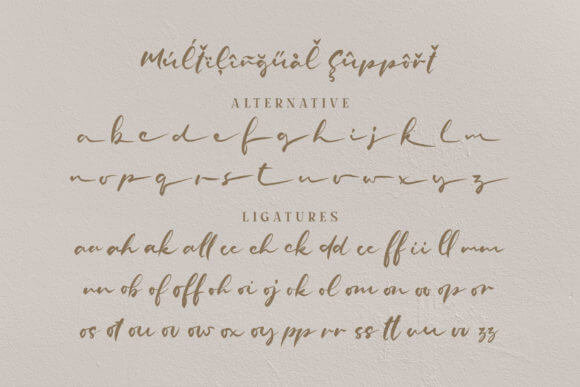 Múĺťïļîñğűåľ Şûppôřť
ALTERNATIVE
a b c d e f g h i j k l m
n o p q r s t u v w x y z
LIGATURES
aa ah ak all cc ch ck dd ee ff ii ll mm
nn ob of off oh oi oj ok ol om on oo op or
os ot ou ov ow ox oy pp rr ss tt uu vv zz